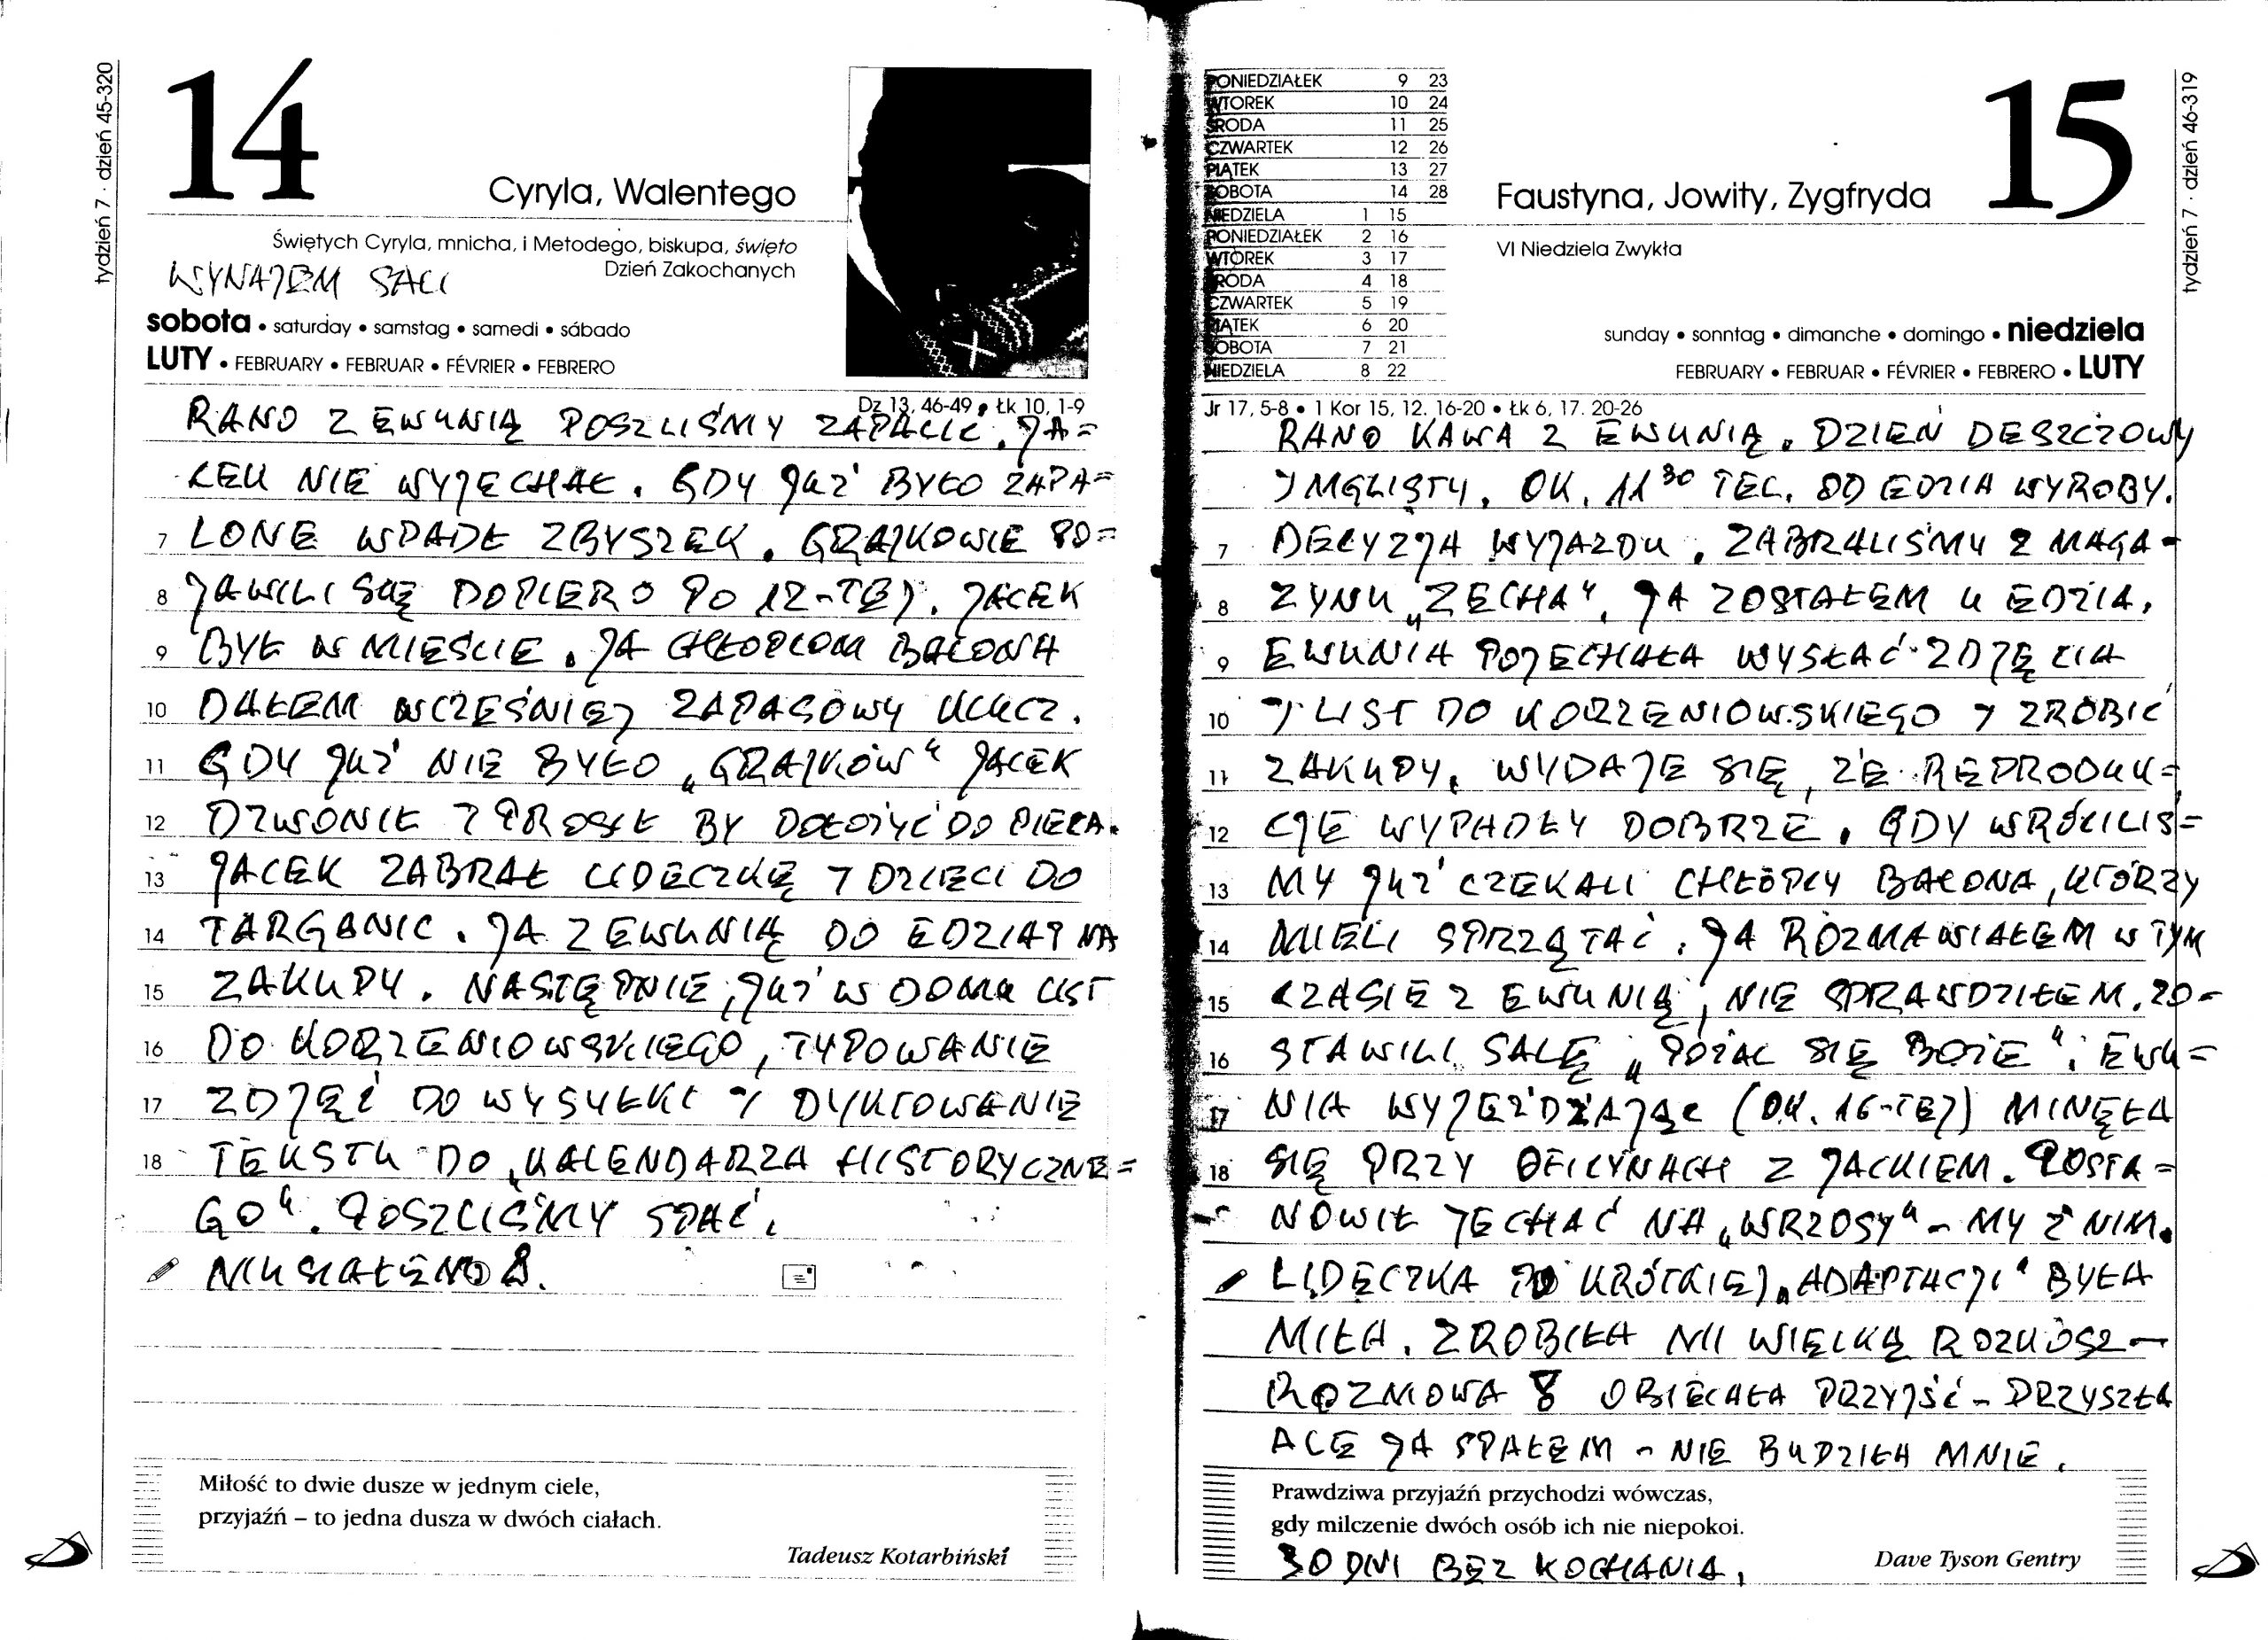 tydzień 7 · dzień 45-320
14
Cyryla, Walentego
Świętych Cyryla, mnicha, i Metodego, biskupa, święto
Dzień Zakochanych
WYNAJEM SALI
sobota • saturday • samstag • samedi • sábado
LUTY • FEBRUARY • FEBRUAR • FÉVRIER • FEBRERO
Dz 13, 46-49 • Łk 10, 1-9
RANO Z EWUNIĄ POSZLIŚMY ZAPALIĆ. JA=
CEK NIE WYJECHAŁ. GDY JUŻ BYŁO ZAPA=
7 LONE WPADŁ ZBYSZEK. GRAJKOWIE PO=
8 JAWILI SIĘ DOPIERO PO 12-TEJ. JACEK
9 BYŁ W MIEŚCIE. JA CHŁOPCOM BALONA
10 DAŁEM WCZEŚNIEJ ZAPASOWY KLUCZ.
11 GDY JUŻ NIE BYŁO „GRAJKÓW" JACEK
12 DZWONIŁ I PROSIŁ BY DOŁOŻYĆ DO PIECA.
13 JACEK ZABRAŁ LIDECZKĘ I DZIECI DO
14 TARGANIC. JA Z EWUNIĄ DO EDZIA I NA
15 ZAKUPY. NASTĘPNIE, JUŻ W DOMU LIST
16 DO KORZENIOWSKIEGO, TYPOWANIE
17 ZDJĘĆ DO WYSYŁKI I DYKTOWANIE
18 TEKSTU DO „KALENDARZA HISTORYCZNE=
GO". POSZLIŚMY SPAĆ.
MUSIAŁEM
Miłość to dwie dusze w jednym ciele,
przyjaźń – to jedna dusza w dwóch ciałach.
Tadeusz Kotarbiński
PONIEDZIAŁEK 9 23
WTOREK 10 24
ŚRODA 11 25
CZWARTEK 12 26
PIĄTEK 13 27
SOBOTA 14 28
NIEDZIELA 1 15
PONIEDZIAŁEK 2 16
WTOREK 3 17
ŚRODA 4 18
CZWARTEK 5 19
PIĄTEK 6 20
SOBOTA 7 21
NIEDZIELA 8 22
15
Faustyna, Jowity, Zygfryda
VI Niedziela Zwykła
sunday • sonntag • dimanche • domingo • niedziela
FEBRUARY • FEBRUAR • FÉVRIER • FEBRERO • LUTY
tydzień 7 · dzień 46-319
Jr 17, 5-8 • 1 Kor 15, 12. 16-20 • Łk 6, 17. 20-26
RANO KAWA Z EWUNIĄ. DZIEŃ DESZCZOWY
I MGLISTY. OK. 11³⁰ TEL. OD EDZIA WYROBY.
7 DECYZJA WYJAZDU. ZABRALIŚMY Z MAGA-
8 ZYNU „ZECHA", JA ZOSTAŁEM U EDZIA.
9 EWUNIA POJECHAŁA WYSŁAĆ ZDJĘCIA
10 I LIST DO KORZENIOWSKIEGO I ZROBIĆ
11 ZAKUPY. WYDAJE SIĘ, ŻE REPRODUK=
12 CJE WYPADŁY DOBRZE. GDY WRÓCILIŚ=
13 MY JUŻ CZEKALI CHŁOPCY BALONA, KTÓRZY
14 MIELI SPRZĄTAĆ. JA ROZMAWIAŁEM W TYM
15 CZASIE Z EWUNIĄ, NIE SPRAWDZIŁEM. ZO-
16 STAWILI SALĘ „POŻAL SIĘ BOŻE". EWU=
17 NIA WYJEŻDŻAJĄC (OK. 16-TEJ) MINĘŁA
18 SIĘ PRZY OFICYNACH Z JACKIEM. POSTA=
NOWIŁ JECHAĆ NA „WRZOSY" – MY Z NIM.
LIDECZKA PO KRÓTKIEJ „ADAPTACJI" BYŁA
MIŁA. ZROBIŁA MI WIELKĄ ROZKOSZ –
ROZMOWA OBIECAŁA PRZYJŚĆ – PRZYSZŁA
ALE JA SPAŁEM – NIE BUDZIŁA MNIE.
Prawdziwa przyjaźń przychodzi wówczas,
gdy milczenie dwóch osób ich nie niepokoi.
Dave Tyson Gentry
30 DNI BEZ KOCHANIA.